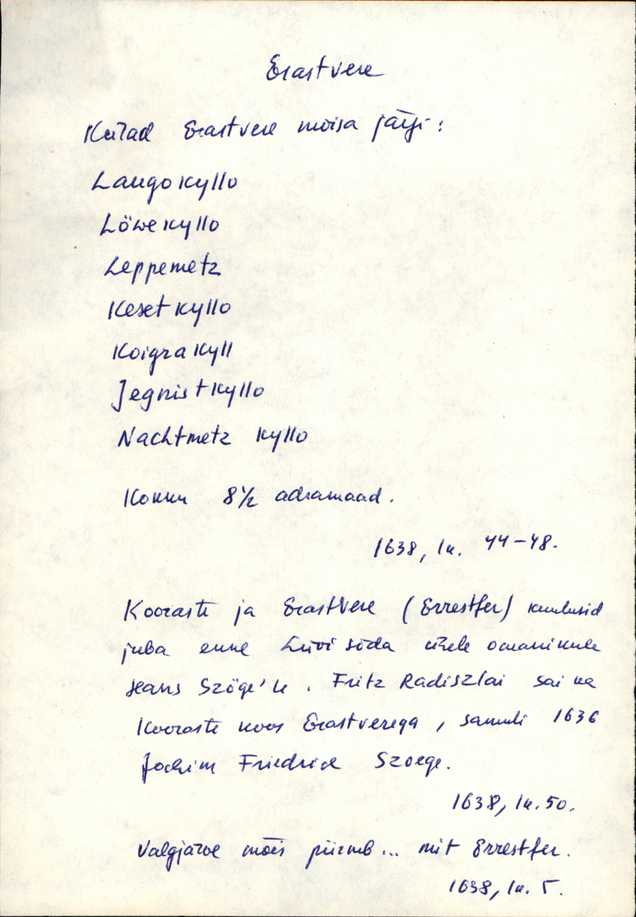 Erastvere
Külad Erastvere mõisa järgi:
Laugokyllo
Löwekyllo
Leppemetz
Kesetkyllo
Koigrakyll
Jegnistkyllo
Nachtmetz kyllo
Kokku 8 1/2 adramaad.
1638, lk. 44-48.
Kooraste ja Erastvere (Errestfer) kuulusid
juba enne Liivi sõda ühele omanikule
Hans Szöge'le. Fritz Radiszlai sai ka
Kooraste koos Erastverega, samuti 1636
Jochim Friedrick Szoege.
1638, lk. 50.
Valgjärve mõis piirneb... mit Errestfer.
1638, lk. 5.